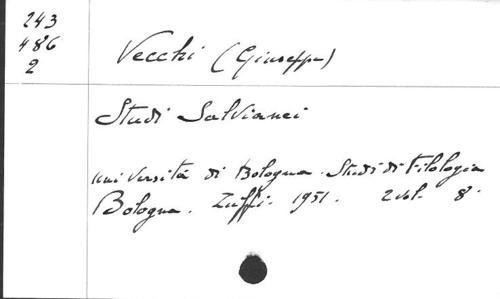 243
486
2
Vecchi (Giuseppe)
Studi Salvianei
Università di Bologna. Studi di Filologia
Bologna. Zuffi. 1951. 2 vol. 8.